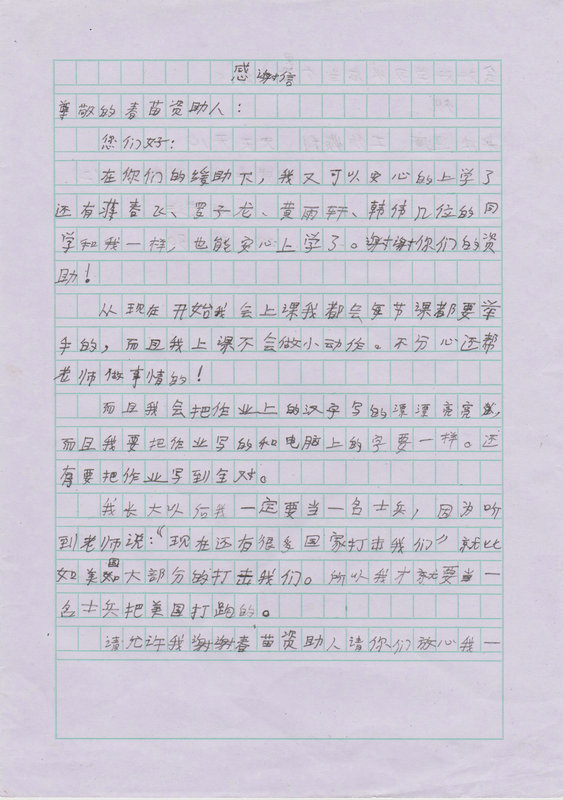 感谢信
尊敬的春苗资助人：
您们好：
在你们的缓助下，我又可以安心的上学了
还有薄春飞、罗子龙、黄雨轩、韩伟几位的同
学和我一样，也能安心上学了。谢谢你们的资
助！
从现在开始我会上课我都会每节课都要举
手的，而且我上课不会做小动作。不分心还帮
老师做事情的！
而且我会把作业上的汉字写的漂漂亮亮
而且我要把作业写的和电脑上的字要一样。还
有要把作业写到全对。
我长大以后我一定要当一名士兵，因为听
到老师说：“现在还有很多国家打击我们”就比
如美国大部分的打击我们。所以我才就要当一
名士兵把美国打跑的。
请允许我谢谢春苗资助人请你们放心我一